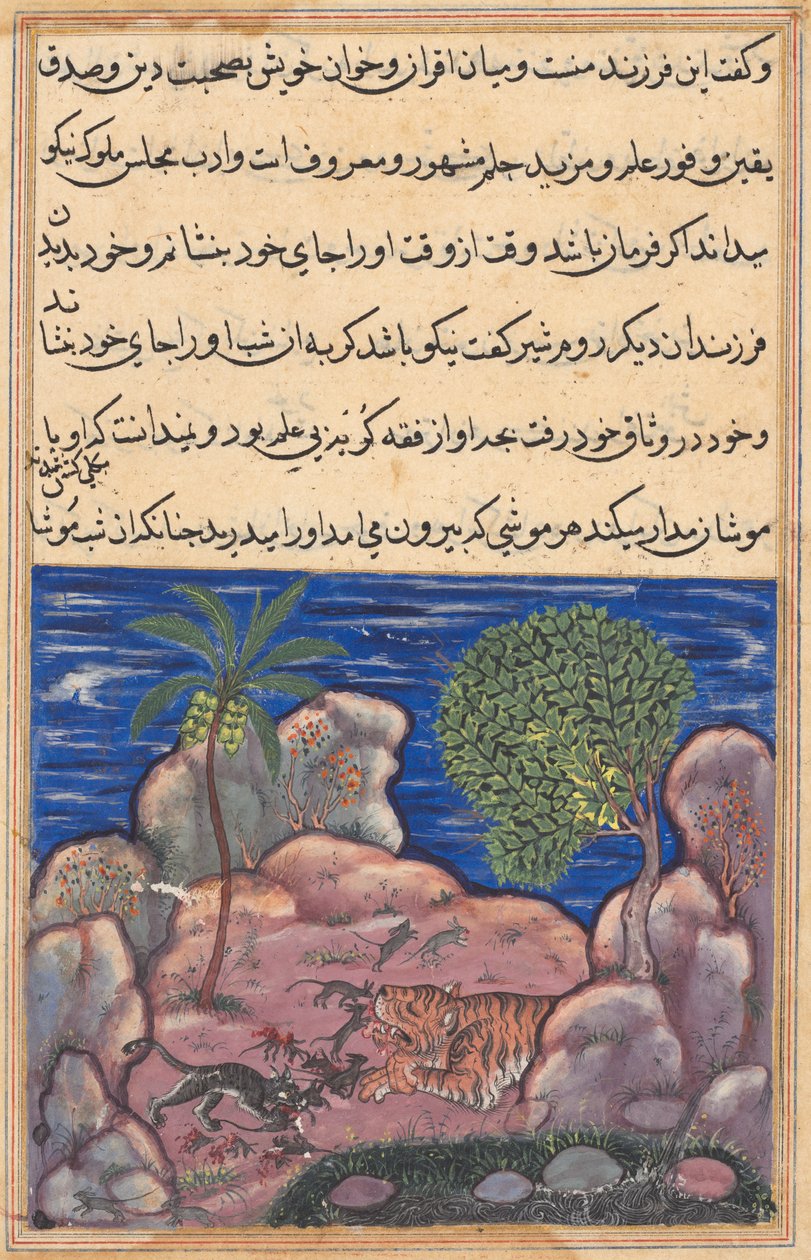 وکفت این فرزند منست ومیان اقران وخوان خویش بصحبت دین وصدق
یقین وفور علم ومزید حلم مشهور ومعروف است وادب مجلس ملوک نیکو
میداند اکر فرمان باشد وقت از وقت اورا جای خود بنشانم وخود بدیدن
فرزندان دیکر روم شیر کفت نیکو باشد کربه ان شب اورا جای خود بنشاند
وخود در وثاق خود رفت بجه او از فقه کربزیی علم بود و نمیدانست که او با
موشان مدار میکند هر موشی که بیرون می امد اورا میدرید جنانکه ان شب موشا